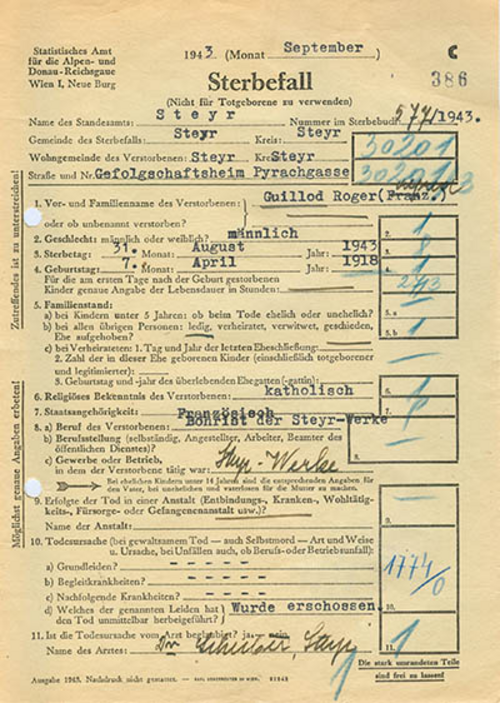 Statistisches Amt
für die Alpen- und
Donau-Reichsgaue
Wien I, Neue Burg
1943 (Monat September)
C
386
Sterbefall
(Nicht für Totgeborene zu verwenden)
Name des Standesamtes: Steyr Nummer im Sterbebuch: 577/1943.
Gemeinde des Sterbefalls: Steyr Kreis: Steyr
30201
Wohngemeinde des Verstorbenen: Steyr Kreis: Steyr
Straße und Nr. Gefolgschaftsheim Pyrachgasse
30201
Zutreffendes ist zu unterstreichen!
1. Vor- und Familienname des Verstorbenen: Guillod Roger (Franz.)
oder ob unbenannt verstorben?
2. Geschlecht: männlich oder weiblich? männlich
2. 1
3. Sterbetag: 31. Monat: August Jahr: 1943
3. 8
4. Geburtstag: 7. Monat: April Jahr: 1918
4.
Für die am ersten Tage nach der Geburt gestorbenen
Kinder genaue Angabe der Lebensdauer in Stunden:
5. Familienstand:
a) bei Kindern unter 5 Jahren: ob beim Tode ehelich oder unehelich?
5. a
b) bei allen übrigen Personen: ledig, verheiratet, verwitwet, geschieden,
Ehe aufgehoben?
5. b 1
c) bei Verheirateten: 1. Tag und Jahr der letzten Eheschließung:
2. Zahl der in dieser Ehe geborenen Kinder (einschließlich totgeborener
und legitimierter):
3. Geburtstag und -jahr des überlebenden Ehegatten (-gattin):
Möglichst genaue Angaben erbeten!
6. Religiöses Bekenntnis des Verstorbenen: katholisch
6. 1
7. Staatsangehörigkeit: Französisch
7.
8. a) Beruf des Verstorbenen: Bohrist der Steyr-Werke
b) Berufsstellung (selbständig, Angestellter, Arbeiter, Beamter des
öffentlichen Dienstes)?
c) Gewerbe oder Betrieb,
in dem der Verstorbene tätig war: Steyr-Werke
8.
Bei ehelichen Kindern unter 14 Jahren sind die entsprechenden Angaben für
den Vater, bei unehelichen und vaterlosen für die Mutter zu machen.
9. Erfolgte der Tod in einer Anstalt (Entbindungs-, Kranken-, Wohltätig-
keits-, Fürsorge- oder Gefangenenanstalt usw.)?
Name der Anstalt:
9.
10. Todesursache (bei gewaltsamem Tod — auch Selbstmord — Art und Weise
u. Ursache, bei Unfällen auch, ob Berufs- oder Betriebsunfall):
a) Grundleiden? - - - - -
b) Begleitkrankheiten? - - - - -
1774/0
c) Nachfolgende Krankheiten? - - - - -
d) Welches der genannten Leiden hat
den Tod unmittelbar herbeigeführt? Wurde erschossen.
10.
11. Ist die Todesursache vom Arzt beglaubigt? ja — nein
Name des Arztes: Dr. Steyr
11. 1
Die stark umrandeten Teile
sind frei zu lassen!
Ausgabe 1943. Nachdruck nicht gestattet.